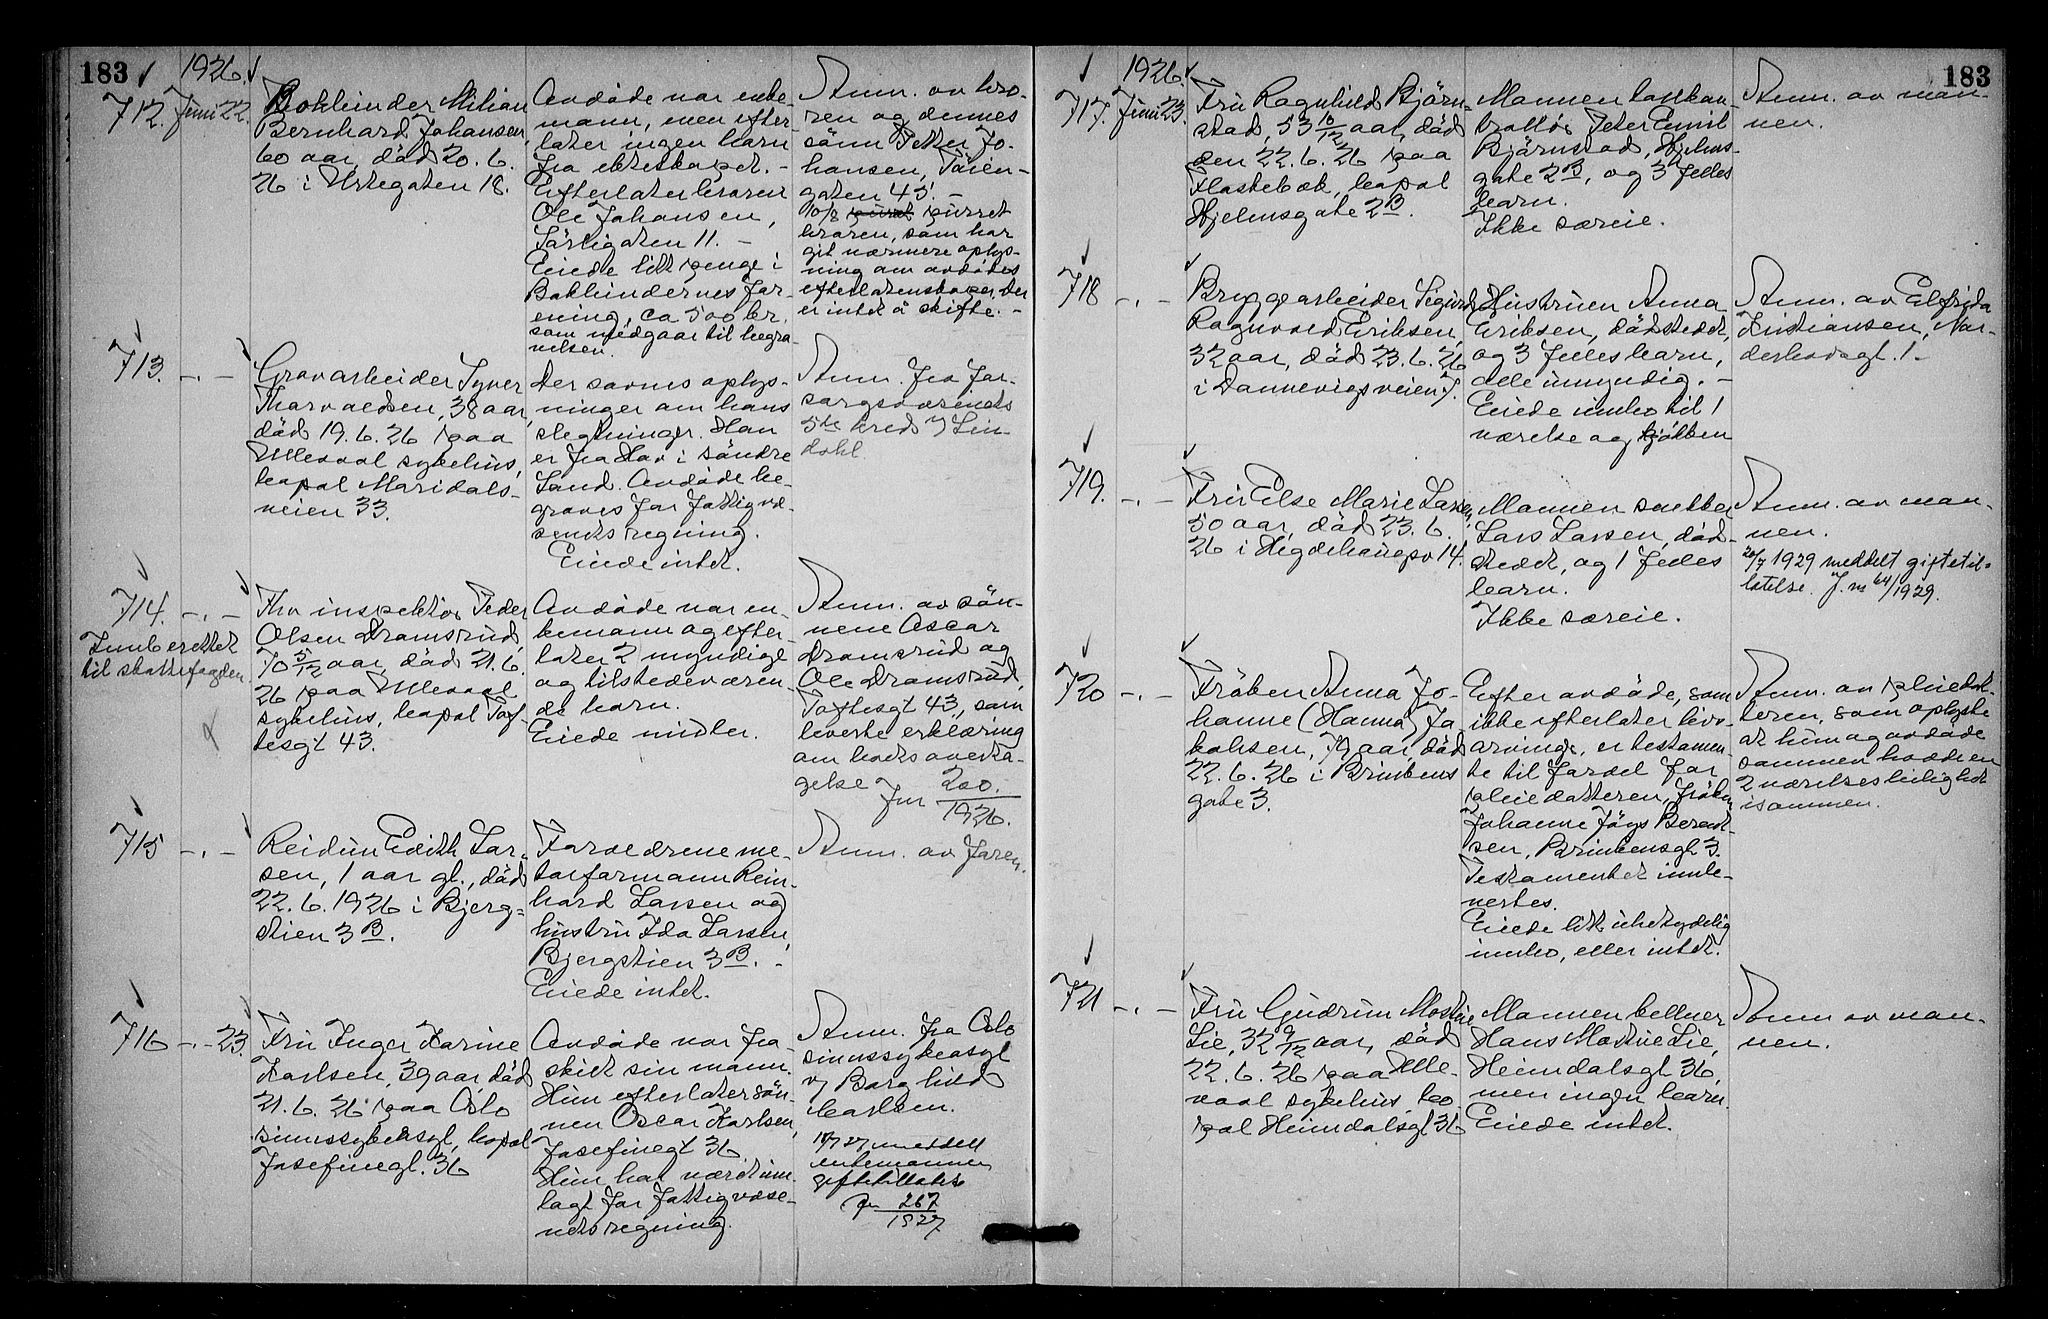 183
1926.
712. Juni 22.
Bokbinder Milian
Bernhard Johansen,
60 aar, död 20. 6.
26 i Urtegaten 18.
Avdöde var enke-
mann, men efter-
later ingen barn
fra ekteskapet. -
Efterlater broren
Ole Johansen,
Sörligaten 11. -
Eiede litt penge i
Bokbindernes for-
ening, ca 500 kr.
som medgaar til begra-
velsen.
Anm. av bro-
ren og dennes
sönn Petter Jo-
hansen, Töien-
gaten 45. -
10/8 purret
broren, som har
git nærmere oplys-
ning om avdödes
efterlatenskaper. Der
er intet å skifte. -
713. -"-
Grovarbeider Syver
Thorvaldsen, 38 aar,
död 19. 6. 26 paa
Ullevaal sykehus,
bopal Maridals-
veien 33.
Der savnes oplys-
ninger om hans
slegtninger. Han
er fra Hov i söndre
Land. Avdöde be-
graves for fattigvæ-
senets regning.
Eiede intet.
Anm. fra for-
sorgsvæsenets
5te kreds v/ Lin-
dahl.
714. -"-
Innberettet
til skattefogden.
Fhv inspektör Peder
Olsen Dramsrud,
70 5/12 aar, död 21. 6.
26 paa Ullevaal
sykehus, bopal Tof-
tesgt 43.
Avdöde var en-
kemann og efter-
later 2 myndige
og tilstedeværen-
de barn.
Eiede midler.
Anm. av sön-
nene Oscar
Dramsrud og
Ole Dramsrud,
Toftesgt 43, som
leverte erklæring
om boets overta-
gelse Jnr 200.
1926.
715 -"-
Reidun Edith Lar-
sen, 1 aar gl., död
22. 6. 1926 i Bjerg-
stien 3 B.
Forældrene me-
tarformann Rein-
hard Larsen og
hustru Ida Larsen,
Bjergstien 3 B. -
Eiede intet.
Anm. av faren.
716 -"- 23.
Fru Inger Karine
Karlsen, 39 aar, död
21. 6. 26 paa Oslo
sinnssykeasyl, bopal
Josefinegt. 36
Avdöde var fra-
skilt sin mann.
Hun efterlater sön-
nen Oscar Karlsen,
Josefinegt 36.
Hun har vært inn-
lagt for fattigvæse-
nets regning.
Anm. fra Oslo
sinnssykeasyl
v/ Borghild
Carlsen.
27 meddelt
enkemannen
giftetillatelse
Jnr 267
1927
183
1926.
717. Juni 23.
Fru Ragnhild Björn-
stad, 53 10/12 aar, död
den 22. 6. 26 paa
Flaskebæk, bopal
Hjelmsgate 2 B.
Mannen lasskon-
trollör Peter Emil
Björnstad, Hjelms-
gate 2 B, og 3 felles
barn.
Ikke særeie.
Anm. av man-
nen.
718 -"-
Bryggearbeider Sigurd
Ragnvald Eriksen,
32 aar, död 23. 6. 26
i Dannevigsveien 7.
Hustruen Anna
Eriksen, dödstedet,
og 3 felles barn,
alle umyndig. -
Eiede innbo til 1
værelse og kjökken
Anm. av Elfrida
Kristiansen, Nor-
derhovsgt. 1. -
719. -"-
Fru Else Marie Larsen,
50 aar, död 23. 6.
26 i Hegdehaugsv 14.
Mannen snekker
Lars Larsen, död-
stedet, og 1 felles
barn.
Ikke særeie.
Anm. av man-
nen.
20/7 1929 meddelt giftetil-
latelse. J. nr 64/1929.
720 -"-
Fröken Anna Jo-
hanne (Hanna) Ja
kobsen, 79 aar, död
22. 6. 26 i Brinkens
gate 3.
Efter avdöde, som
ikke efterlater livs-
arvinge, er testamen-
te til fordel for
pleiedatteren, fröken
Johanne Berent-
sen, Brinkensgt 3.
Testamentet innle-
vertes.
Eiede litt ubetydelig
innbo, eller intet.
Anm. av pleiedat-
teren, som oplyste
at hun og avdöde
sammen hadde en
2 værelses leilighet
isammen.
721 -"-
Fru Gudrun Mostue
Lie, 32 9/12 aar, död
22. 6. 26 paa Ulle-
vaal sykehus, bo
pal Heimdalsgt 36
Mannen kellner
Hans Mostue Lie,
Heimdalsgt 36,
men ingen barn.
Eiede intet.
Anm av man-
nen.